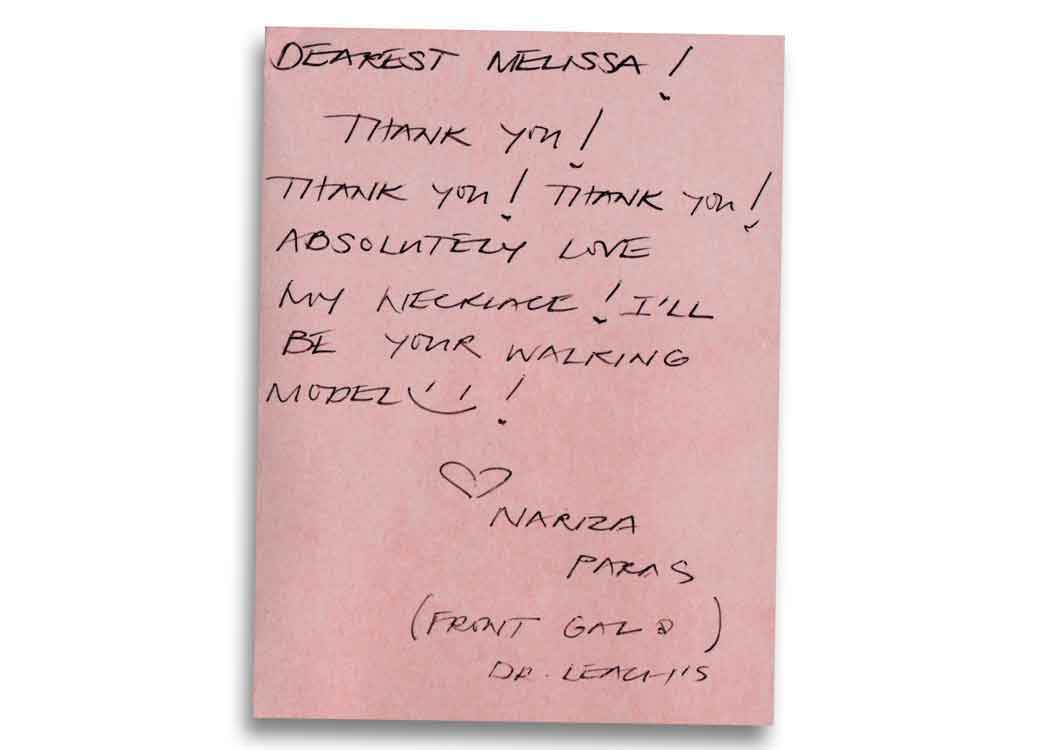 DEAREST MELISSA!
THANK YOU!
THANK YOU! THANK YOU!
ABSOLUTELY LOVE
MY NECKLACE! I'LL
BE YOUR WALKING
MODEL !
♡
NARIZA
PARAS
(FRONT GAL @ )
DR. LEACH'S